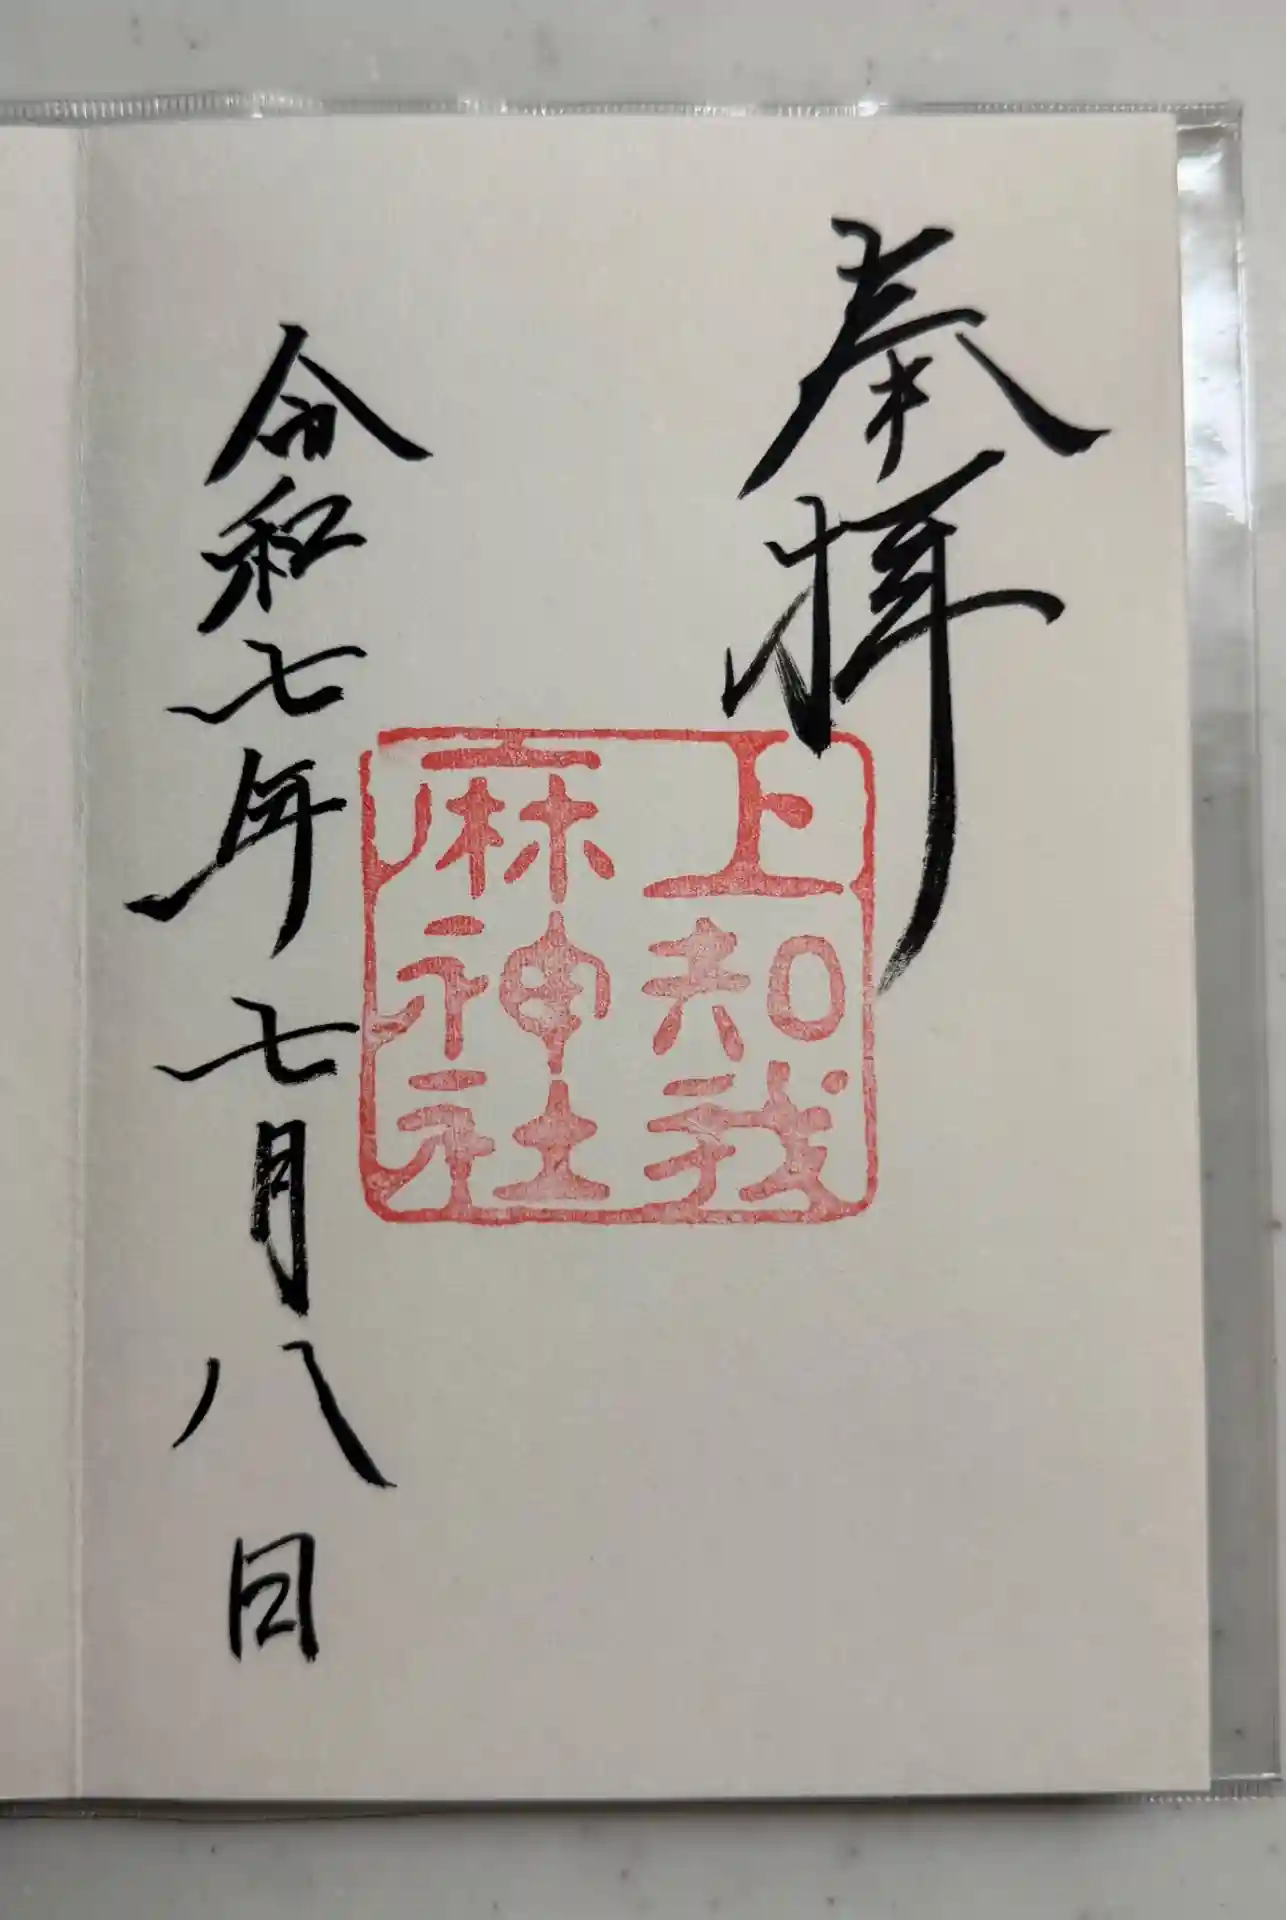 奉拝
上知我
麻神社
令和七年七月八日